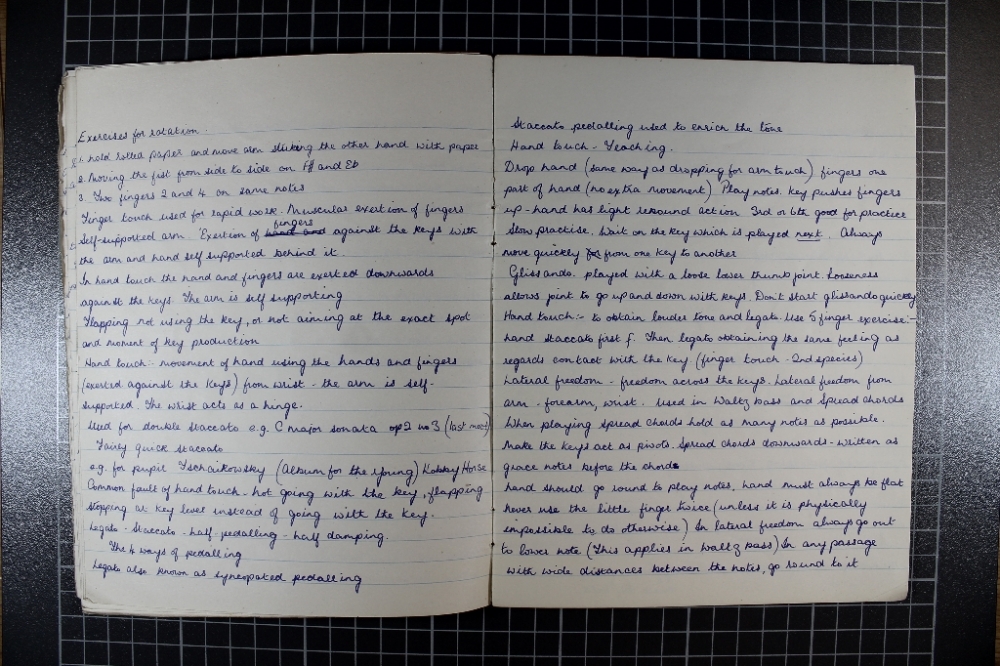 Exercises for rotation.
1. hold rolled paper and move arm sticking the other hand with paper
2. Moving the fist from side to side on F# and Eb
3. Two fingers 2 and 4 on same notes
Finger touch used for rapid work. Muscular exertion of fingers
Self-supported arm. Exertion of fingers against the keys with
the arm and hand self supported behind it.
In hand touch the hand and fingers are exerted downwards
against the keys. The arm is self supporting
Flapping not using the key, or not aiming at the exact spot
and moment of key production
Hand touch:- movement of hand using the hands and fingers
(exerted against the keys) from wrist - the arm is self-
supported. The wrist acts as a hinge.
Used for double staccato e.g. C major sonata op 2 no 3 (last mov)
Fairy quick staccato
e.g. for pupil Tschaikowsky (Album for the young) Hobby Horse
Common fault of hand touch - not going with the key, flapping
stopping at key level instead of going with the key.
Legato - staccato - half-pedalling - half damping.
The 4 ways of pedalling
Legato also known as syncopated pedalling
Staccato pedalling used to enrich the tone
Hand touch - Teaching.
Drop hand (same way as dropping for arm touch) fingers one
part of hand (no extra movement) Play notes. key pushes fingers
up - hand has light rebound action 3rd or 6th good for practice
Slow practise. Wait on the key which is played next. Always
move quickly from one key to another
Glissando. played with a loose lower thumb joint. Looseness
allows joint to go up and down with keys. Don't start glissando quickly
Hand touch:- to obtain louder tone and legato. Use 5 finger exercise:-
hand staccato first f. Then legato obtaining the same feeling as
regards contact with the key (finger touch - 2nd species)
Lateral freedom - freedom across the keys. Lateral freedom from
arm - forearm, wrist. used in Waltz bass and Spread chords
When playing spread chords hold as many notes as possible.
Make the keys act as pivots. Spread chords downwards - written as
grace notes before the chords
hand should go round to play notes. hand must always be flat
never use the little finger twice (unless it is physically
impossible to do otherwise) In lateral freedom always go out
to lower note (This applies in Waltz bass) In any passage
with wide distances between the notes, go round to it